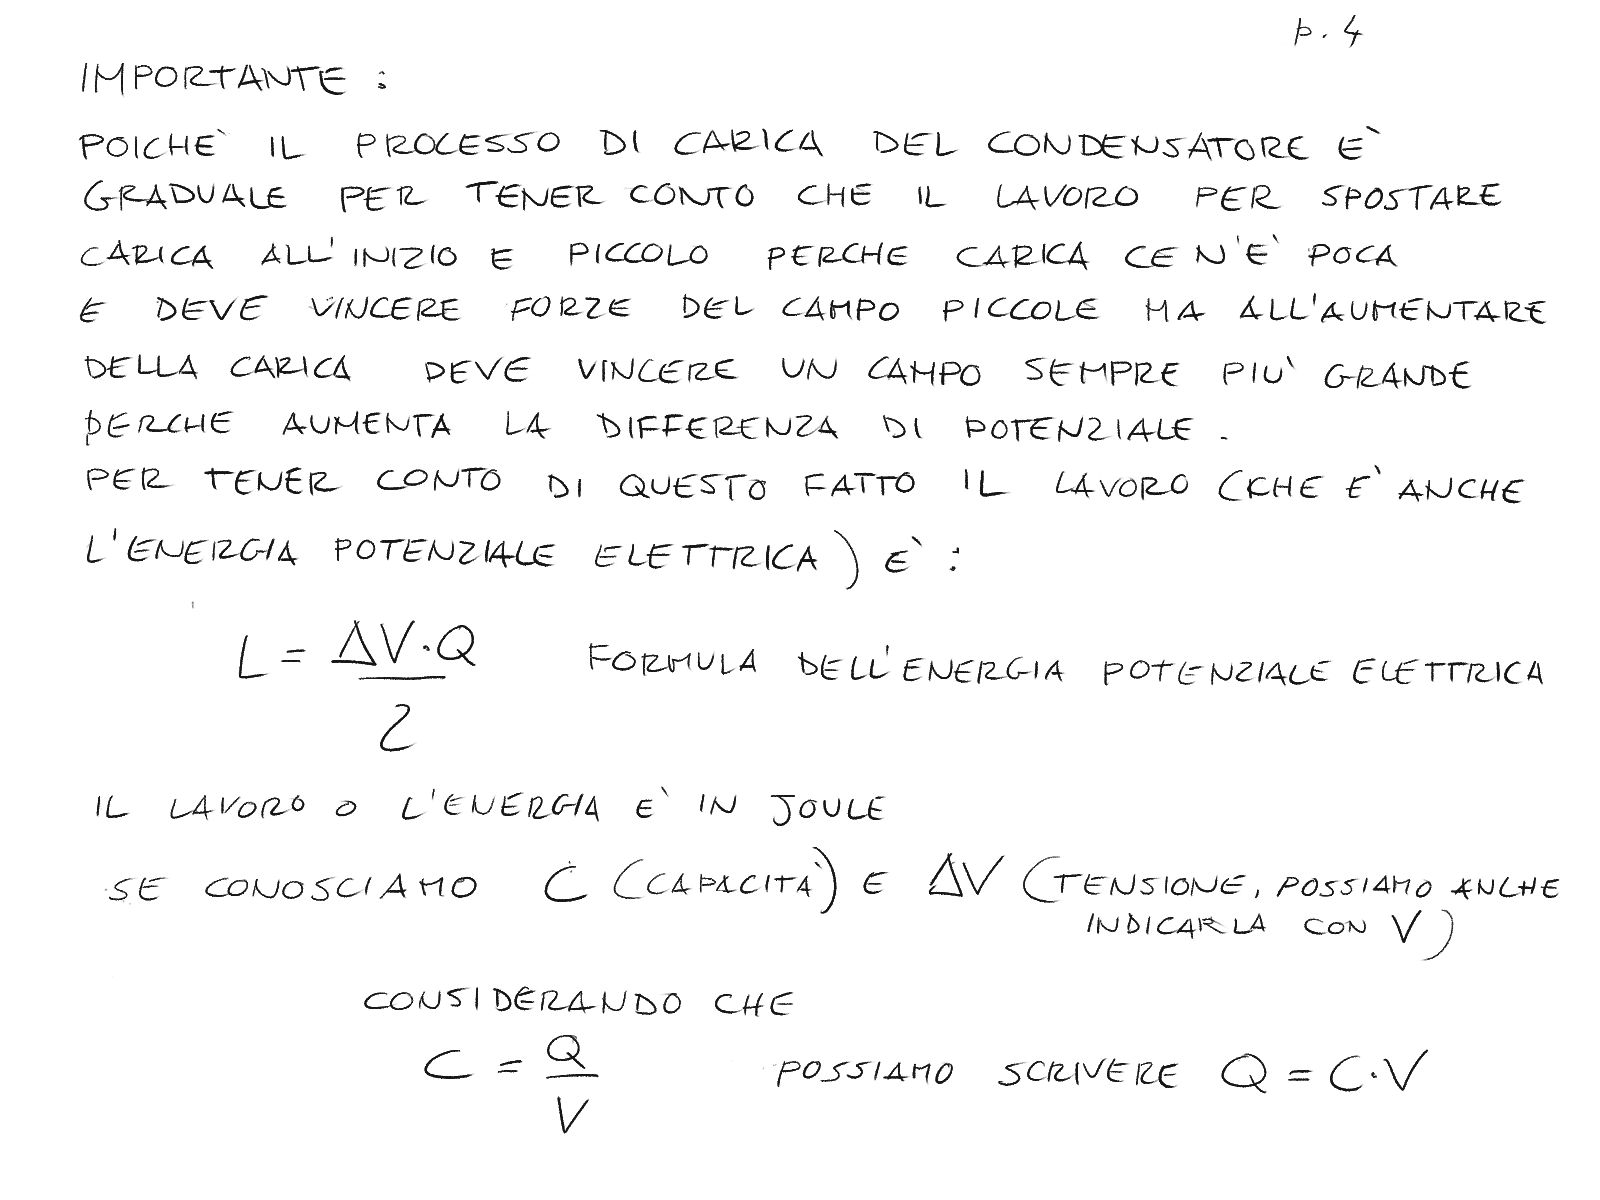 p. 4
IMPORTANTE :
POICHE` IL PROCESSO DI CARICA DEL CONDENSATORE E`
GRADUALE PER TENER CONTO CHE IL LAVORO PER SPOSTARE
CARICA ALL'INIZIO E PICCOLO PERCHE CARICA CE N'E` POCA
E DEVE VINCERE FORZE DEL CAMPO PICCOLE MA ALL'AUMENTARE
DELLA CARICA DEVE VINCERE UN CAMPO SEMPRE PIU` GRANDE
PERCHE AUMENTA LA DIFFERENZA DI POTENZIALE .
PER TENER CONTO DI QUESTO FATTO IL LAVORO (CHE E` ANCHE
L'ENERGIA POTENZIALE ELETTRICA) E` :
L = ΔV·Q / 2 FORMULA DELL'ENERGIA POTENZIALE ELETTRICA
IL LAVORO O L'ENERGIA E` IN JOULE
SE CONOSCIAMO C (CAPACITÀ) E ΔV (TENSIONE, POSSIAMO ANCHE
INDICARLA CON V)
CONSIDERANDO CHE
C = Q / V POSSIAMO SCRIVERE Q = C·V